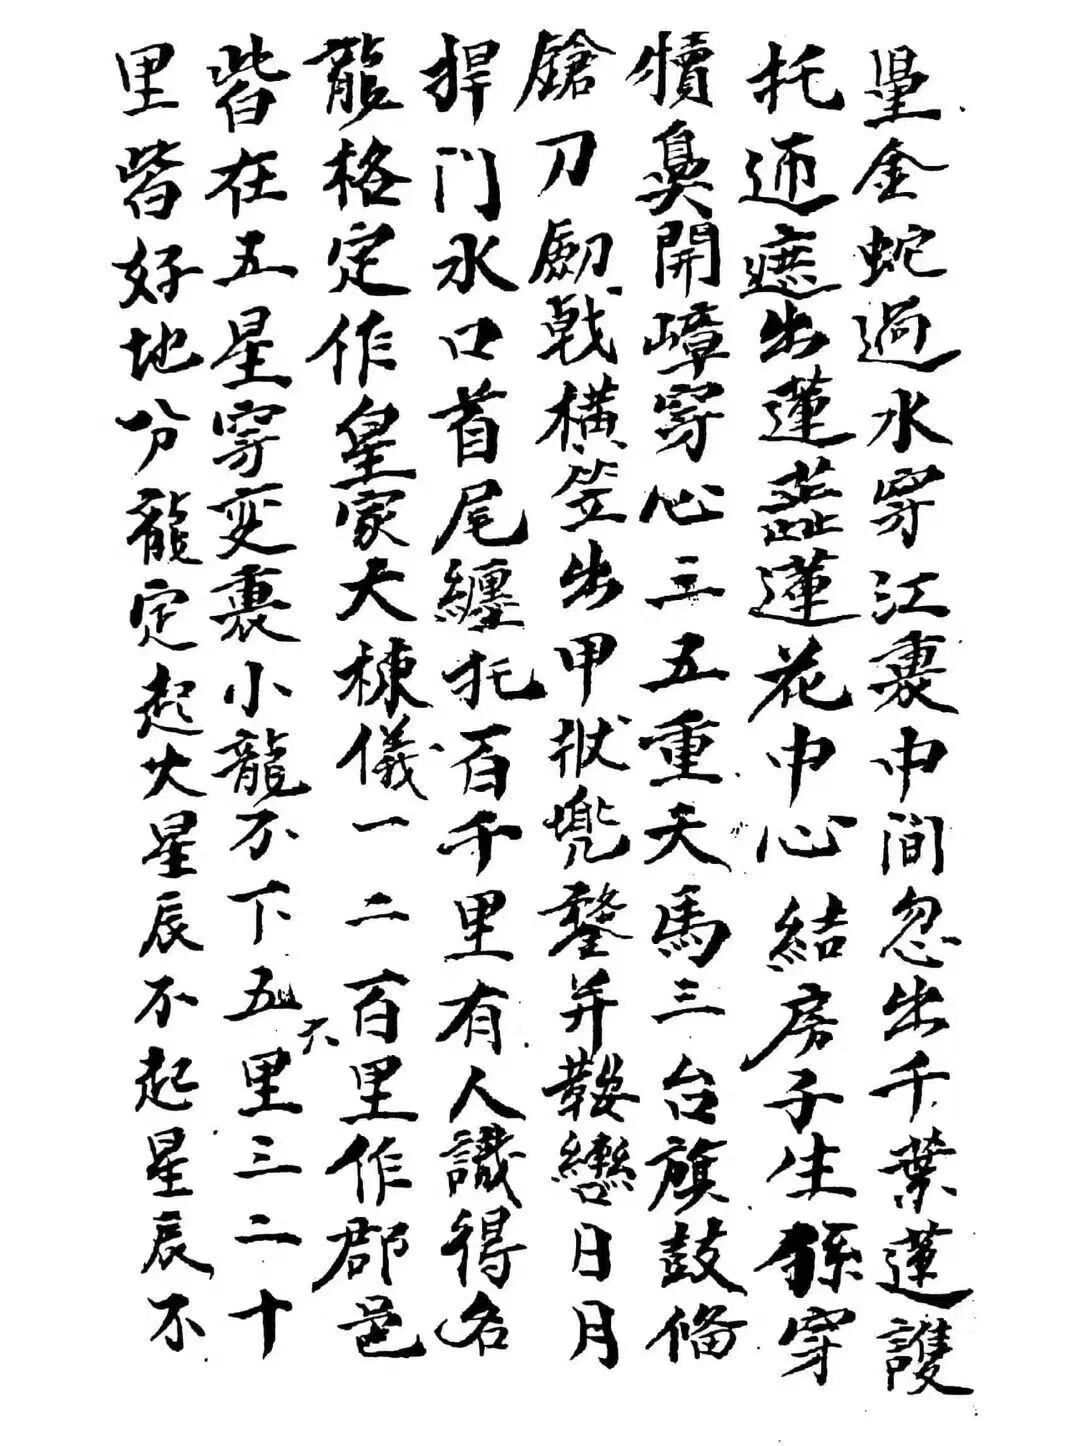 量金蛇過水穿江裏中間忽出千葉蓮護
托迊遮出蓮蕋蓮花中心結房子生孫穿
犢鼻開嶂穿心三五重天馬三台旗鼓俻
鎗刀劒戟橫笠出甲狀兜鍪并鞍轡日月
捍門水口首尾纏托百千里有人識得名
龍格定作皇家大棟儀一二百里作郡邑
皆在五星穿変裏小龍不下五六里三二十
里皆好地分龍定起火星辰不起星辰不